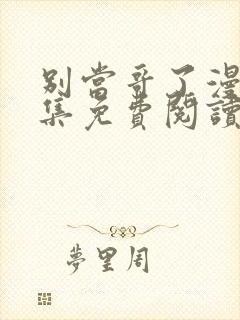 別當哥了漫
集免費閱讀
夢里周